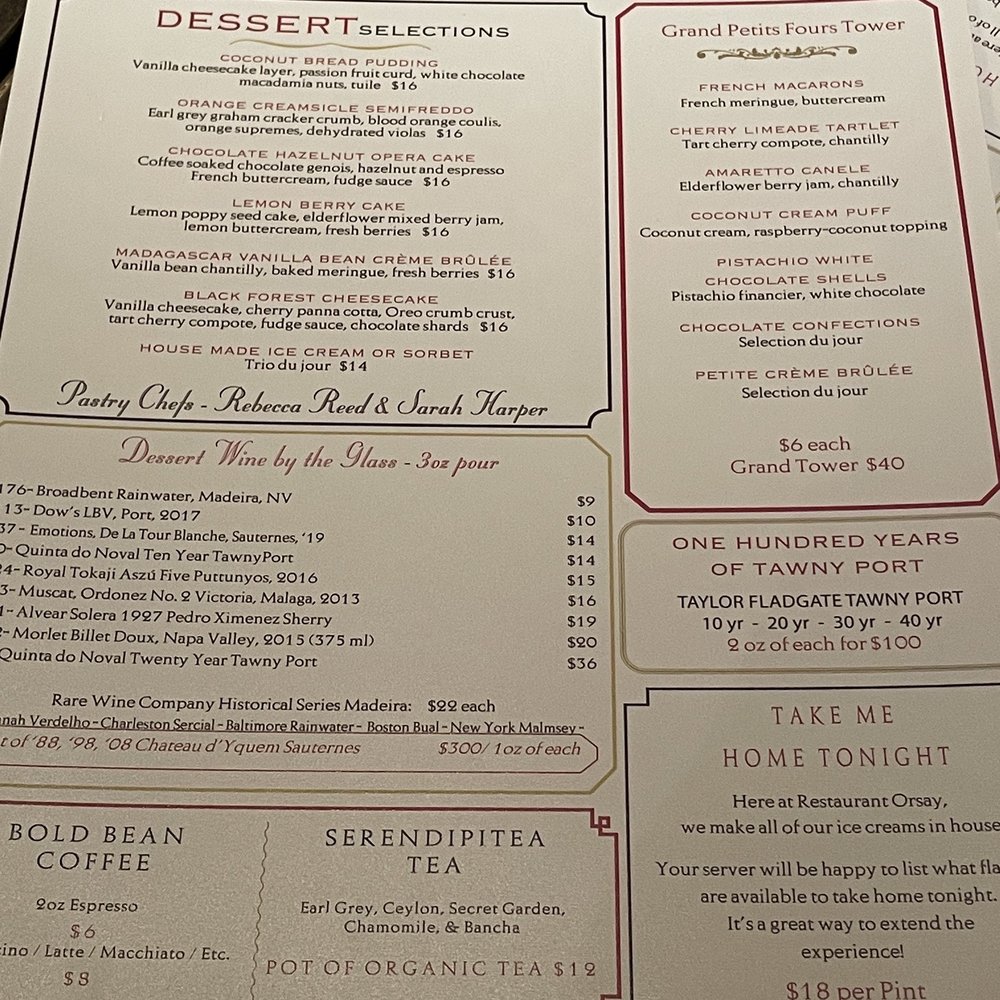 DESSERT SELECTIONS
COCONUT BREAD PUDDING
Vanilla cheesecake layer, passion fruit curd, white chocolate
macadamia nuts, tuile $16
ORANGE CREAMSICLE SEMIFREDDO
Earl grey graham cracker crumb, blood orange coulis,
orange supremes, dehydrated violas $16
CHOCOLATE HAZELNUT OPERA CAKE
Coffee soaked chocolate genois, hazelnut and espresso
French buttercream, fudge sauce $16
LEMON BERRY CAKE
Lemon poppy seed cake, elderflower mixed berry jam,
lemon buttercream, fresh berries $16
MADAGASCAR VANILLA BEAN CRÈME BRÛLÉE
Vanilla bean chantilly, baked meringue, fresh berries $16
BLACK FOREST CHEESECAKE
Vanilla cheesecake, cherry panna cotta, Oreo crumb crust,
tart cherry compote, fudge sauce, chocolate shards $16
HOUSE MADE ICE CREAM OR SORBET
Trio du jour $14
Pastry Chefs - Rebecca Reed & Sarah Harper
Dessert Wine by the Glass - 3oz pour
176- Broadbent Rainwater, Madeira, NV $9
13- Dow's LBV, Port, 2017 $10
37 - Emotions, De La Tour Blanche, Sauternes, '19 $14
0- Quinta do Noval Ten Year TawnyPort $14
24- Royal Tokaji Aszú Five Puttunyos, 2016 $15
3- Muscat, Ordonez No. 2 Victoria, Malaga, 2013 $16
1- Alvear Solera 1927 Pedro Ximenez Sherry $19
2- Morlet Billet Doux, Napa Valley, 2015 (375 ml) $20
Quinta do Noval Twenty Year Tawny Port $36
Rare Wine Company Historical Series Madeira: $22 each
nah Verdelho - Charleston Sercial - Baltimore Rainwater - Boston Bual - New York Malmsey -
t of '88, '98, '08 Chateau d'Yquem Sauternes $300/ 1oz of each
BOLD BEAN
COFFEE
2oz Espresso
$6
ino / Latte / Macchiato / Etc.
$8
SERENDIPITEA
TEA
Earl Grey, Ceylon, Secret Garden,
Chamomile, & Bancha
POT OF ORGANIC TEA $12
Grand Petits Fours Tower
FRENCH MACARONS
French meringue, buttercream
CHERRY LIMEADE TARTLET
Tart cherry compote, chantilly
AMARETTO CANELE
Elderflower berry jam, chantilly
COCONUT CREAM PUFF
Coconut cream, raspberry-coconut topping
PISTACHIO WHITE
CHOCOLATE SHELLS
Pistachio financier, white chocolate
CHOCOLATE CONFECTIONS
Selection du jour
PETITE CRÈME BRÛLÉE
Selection du jour
$6 each
Grand Tower $40
ONE HUNDRED YEARS
OF TAWNY PORT
TAYLOR FLADGATE TAWNY PORT
10 yr - 20 yr - 30 yr - 40 yr
2 oz of each for $100
TAKE ME
HOME TONIGHT
Here at Restaurant Orsay,
we make all of our ice creams in house
Your server will be happy to list what fla
are available to take home tonight.
It's a great way to extend the
experience!
$18 per Pint